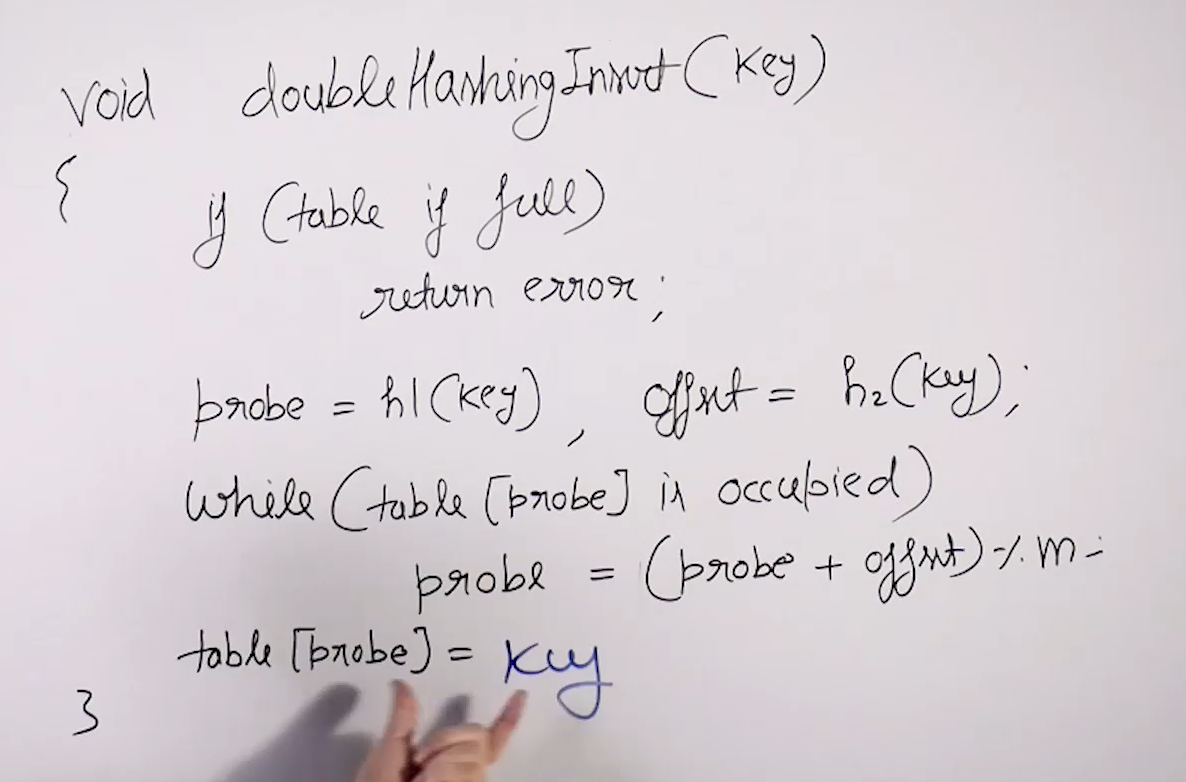 void doubleHashingInsert(Key)
{
if (table if full)
return error;
probe = h1(Key), offset = h2(Key);
While (table [probe] is occupied)
probe = (probe + offset) % m -
table [probe] = Key
}